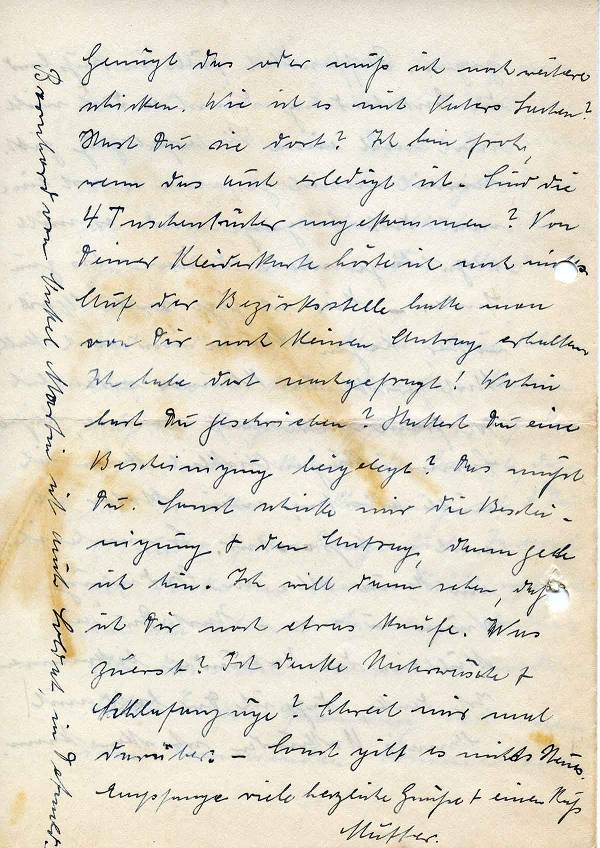 Genügt das oder muß ich noch weitere
schicken. Wie ist es mit Vaters Sachen?
Hast Du sie dort? Ich bin froh,
wenn das auch erledigt ist. Sind die
4 Taschentücher angekommen? Von
Deiner Kleiderkarte hörte ich noch nichts.
Auf der Bezirksstelle hatte man
von Dir noch keinen Antrag erhalten.
Ich habe dort nachgefragt! Wohin
hast Du geschrieben? Hattest Du eine
Bescheinigung beigelegt? Das mußt
Du. Sonst schicke mir die Beschei-
nigung & den Antrag, dann gehe
ich hin. Ich will dann sehen, daß
ich Dir noch etwas kaufe. Was
zuerst? Ich denke Unterwäsche &
Schlafanzüge? Schreib mir mal
darüber. – Sonst gibt es nichts Neues.
Empfange viele herzliche Grüße & einen Kuß
Mutter.
von Onkel Martin ist auch Soldat, in